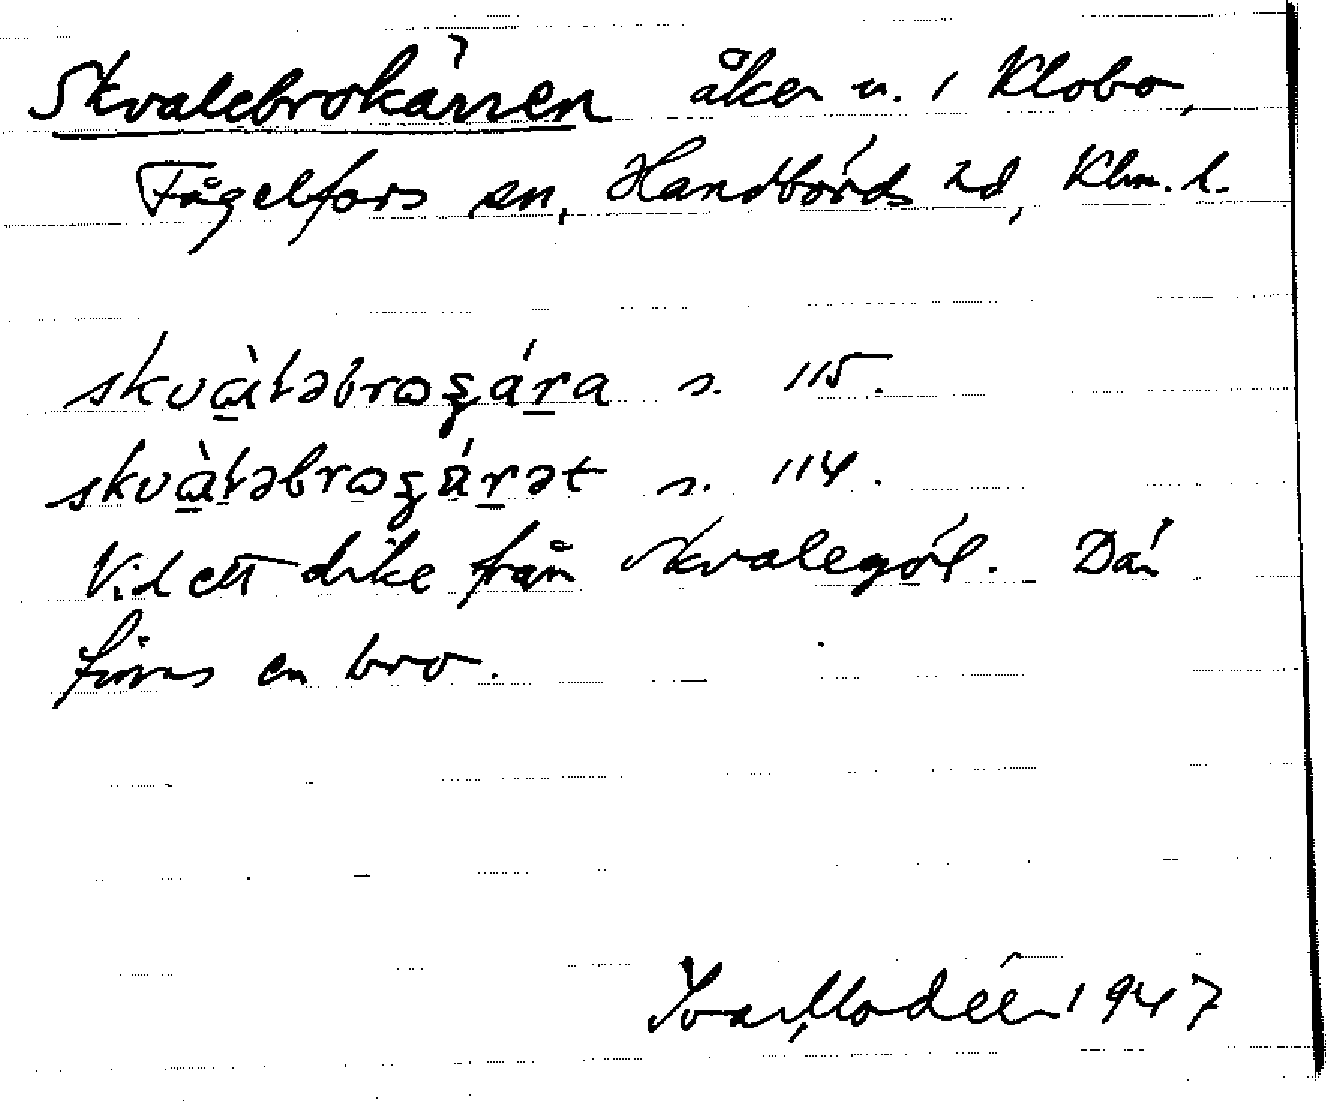 Skvalebrokärren åker n. i Klobo,
Fågelfors sn, Handbörds hd, Klm. l.
skvɑ̀ɫəbroʂára s. 115.
skvɑ̀ɫəbroʂárət s. 114.
Vid ett dike från Skvalegöl. Där
finns en bro.
Ivar Modéer 1947